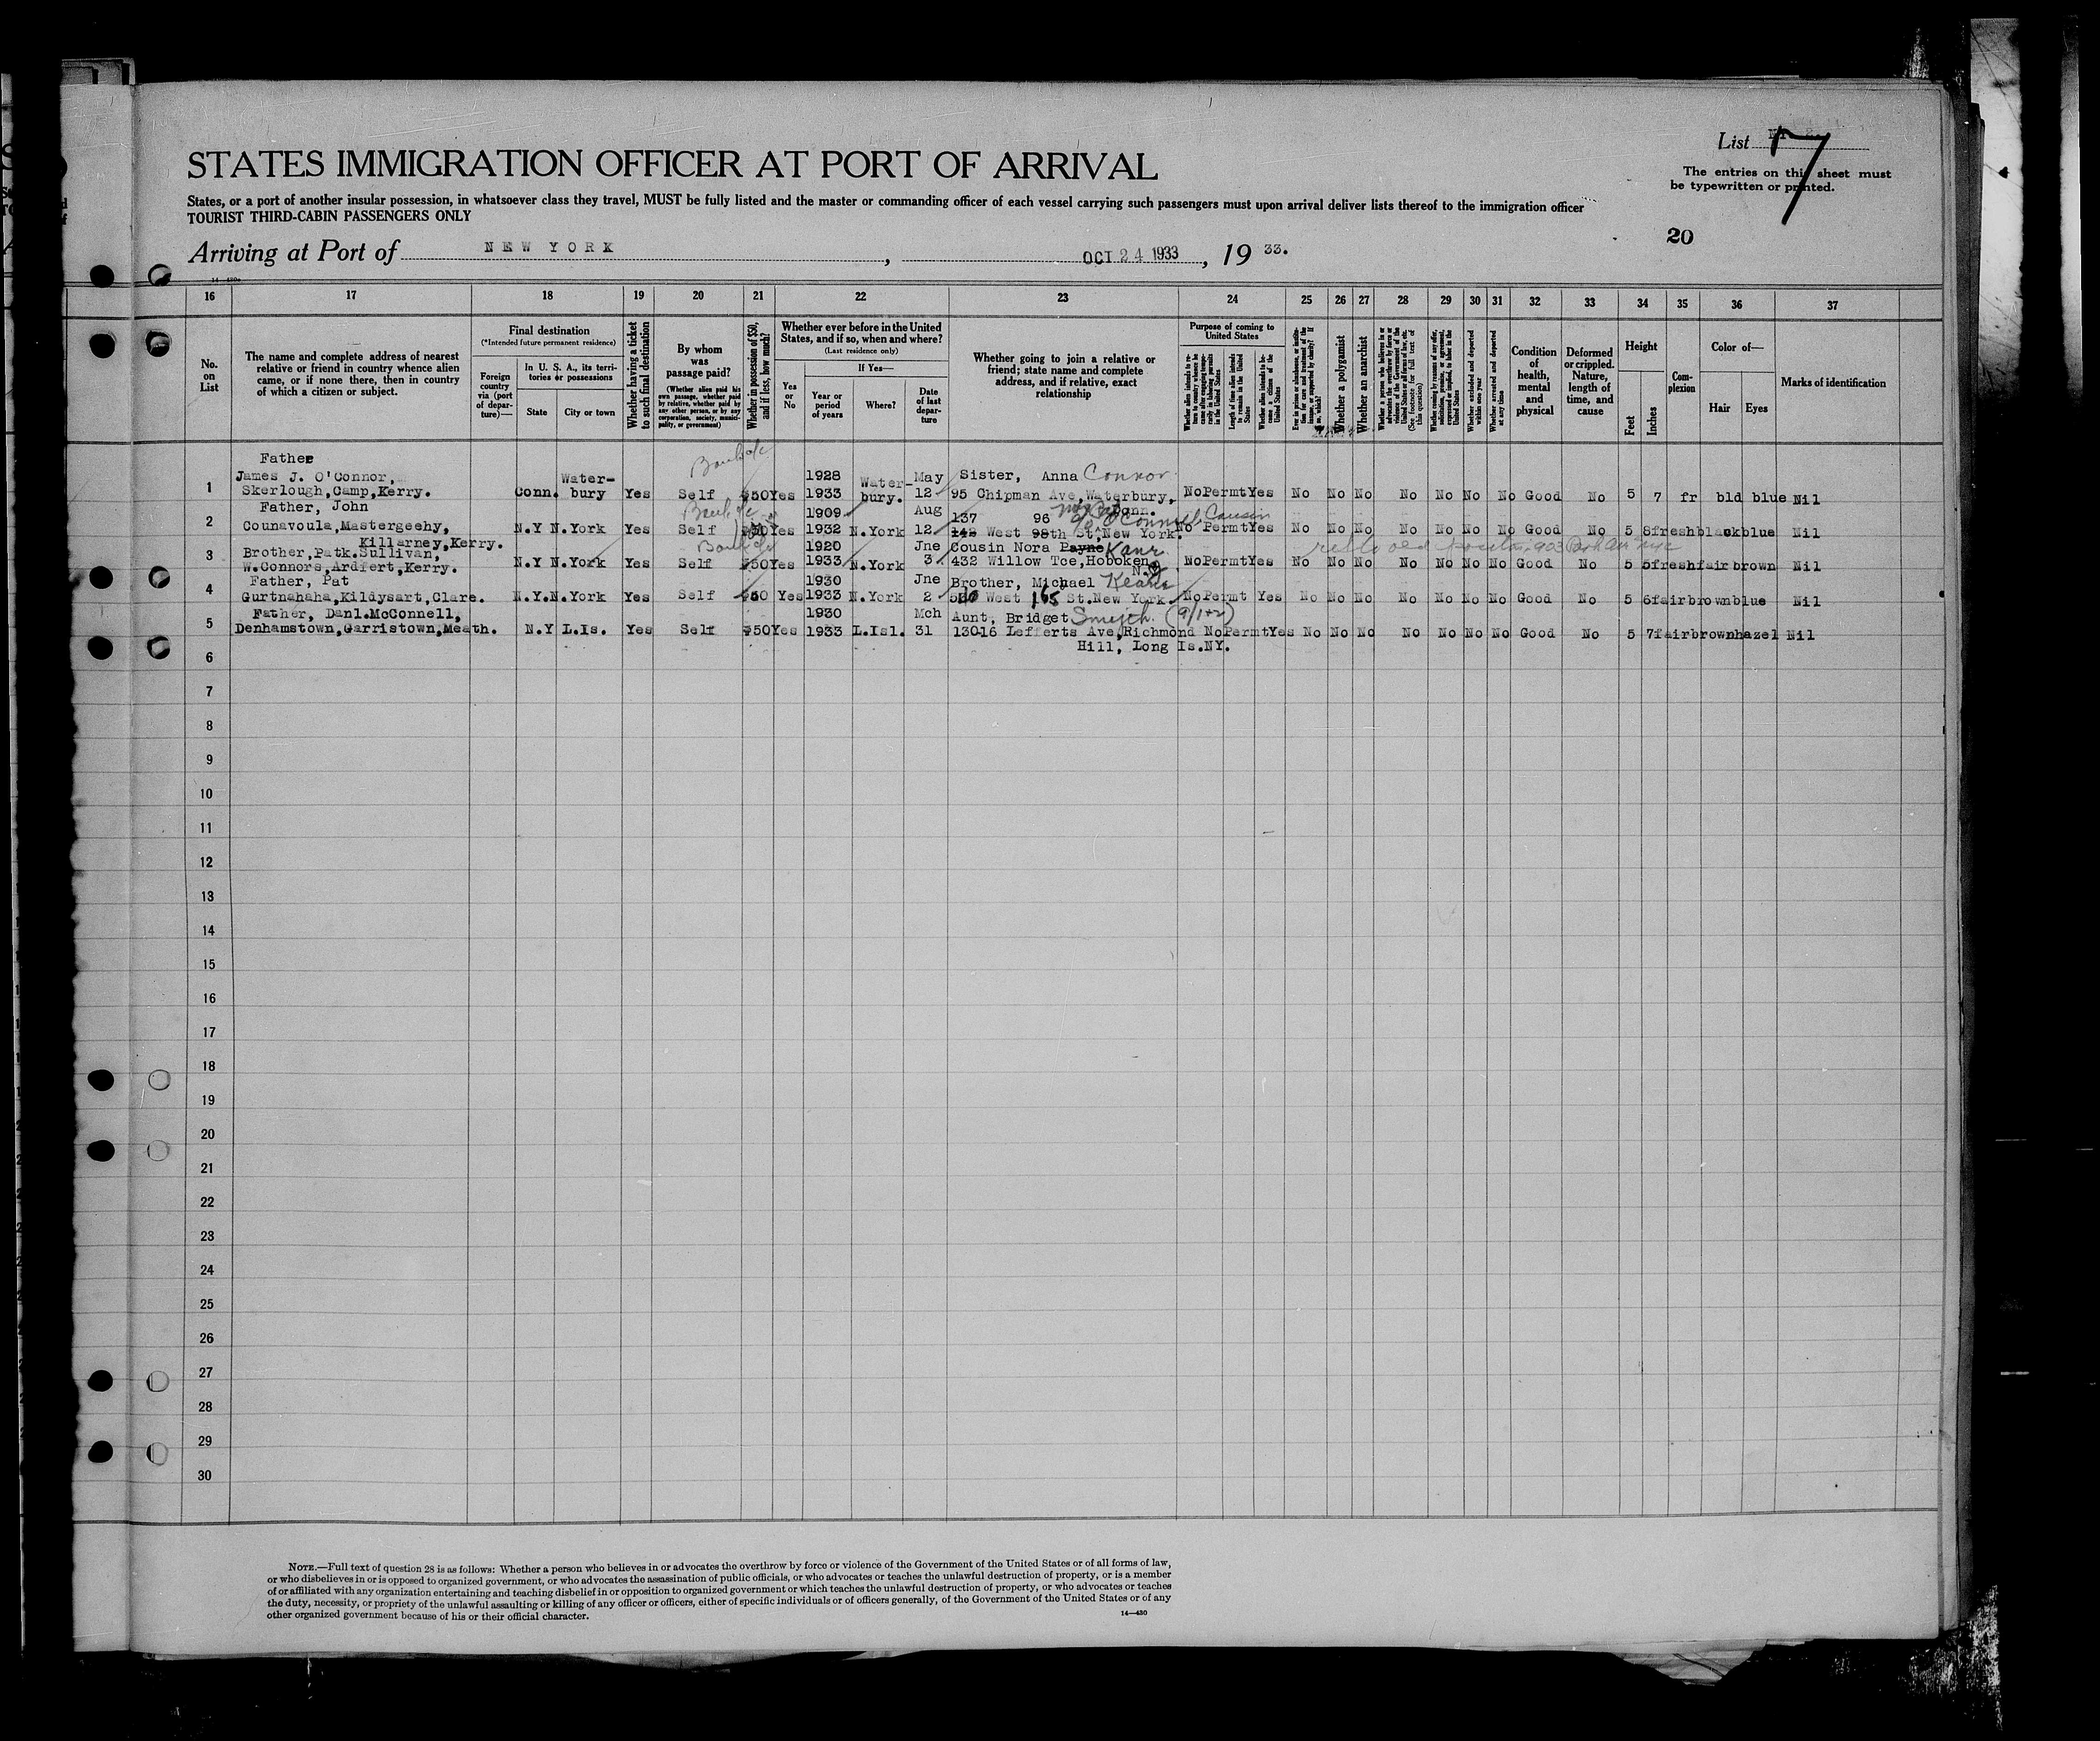 List 17
The entries on this sheet must
be typewritten or printed.
STATES IMMIGRATION OFFICER AT PORT OF ARRIVAL
States, or a port of another insular possession, in whatsoever class they travel, MUST be fully listed and the master or commanding officer of each vessel carrying such passengers must upon arrival deliver lists thereof to the immigration officer
TOURIST THIRD-CABIN PASSENGERS ONLY
20
Arriving at Port of NEW YORK, OCT 24 1933, 19 33.
16 17 18 19 20 21 22 23 24 25 26 27 28 29 30 31 32 33 34 35 36 37
No. on List
The name and complete address of nearest relative or friend in country whence alien came, or if none there, then in country of which a citizen or subject.
Final destination
(*Intended future permanent residence)
Foreign country via (port of departure)—
In U. S. A., its territories or possessions
State
City or town
Whether having a ticket to such final destination
By whom was passage paid?
(Whether alien paid his own passage, whether paid by relative, whether paid by any other person, or by any corporation, society, municipality, or government)
Whether in possession of $50, and if less, how much?
Whether ever before in the United States, and if so, when and where?
(Last residence only)
Yes or No
If Yes—
Year or period of years
Where?
Date of last departure
Whether going to join a relative or friend; state name and complete address, and if relative, exact relationship
Purpose of coming to United States
Whether alien intends to return to country whence he came after engaging temporarily in laboring pursuits in the United States
Length of time alien intends to remain in the United States
Whether alien intends to become a citizen of the United States
Ever in prison or almshouse, or institution for care and treatment of the insane, or supported by charity? If so, which?
Whether a polygamist
Whether an anarchist
Whether a person who believes in or advocates the overthrow by force or violence of the Government of the United States or all forms of law, etc. (See footnote for full text of this question)
Whether coming by reasons of any offer, solicitation, promise, or agreement, expressed or implied, to labor in the United States
Whether excluded and deported within one year
Whether arrested and deported at any time
Condition of health, mental and physical
Deformed or crippled. Nature, length of time, and cause
Height
Feet
Inches
Complexion
Color of—
Hair
Eyes
Marks of identification
Father
James J. O'Connor, Water- 1928 Water- May Sister, Anna Connor
1 Skerlough,Camp,Kerry. Conn. bury Yes Self $50 Yes 1933 bury. 12 95 Chipman Ave,Waterbury, No Permt Yes No No No No No No No Good No 5 7 fr bld blue Nil
Father, John 1909 Aug Conn.
137 96 O'Connell, Cousin
2 Counavoula,Mastergeehy, N.Y N.York Yes Self $50 Yes 1932 N.York 12 142 West 98th St,New York. No Permt Yes No No No No No No No Good No 5 8 fresh black blue Nil
Killarney,Kerry.
Brother,Patk.Sullivan, 1920 Jne Cousin Nora Payne Kane
3 W.Connors,Ardfert,Kerry. N.Y N.York Yes Self $50 Yes 1933 N.York 3 432 Willow Tce,Hoboken No Permt Yes No No No No No No No Good No 5 5 fresh fair brown Nil
N.J.
Father, Pat 1930 Jne Brother, Michael Keane
4 Gurtnahaha,Kildysart,Clare. N.Y. N.York Yes Self $50 Yes 1933 N.York 2 West 165 St.New York. No Permt Yes No No No No No No No Good No 5 6 fair brown blue Nil
Father, Danl.McConnell, 1930 Mch Aunt, Bridget
5 Denhamstown,Garristown,Meath. N.Y L.Is. Yes Self $50 Yes 1933 L.Isl. 31 13016 Lefferts Ave,Richmond No Permt Yes No No No No No No No Good No 5 7 fair brown hazel Nil
Hill, Long Is.NY.
6
7
8
9
10
11
12
13
14
15
16
17
18
19
20
21
22
23
24
25
26
27
28
29
30
NOTE.—Full text of question 28 is as follows: Whether a person who believes in or advocates the overthrow by force or violence of the Government of the United States or of all forms of law,
or who disbelieves in or is opposed to organized government, or who advocates the assassination of public officials, or who advocates or teaches the unlawful destruction of property, or is a member
of or affiliated with any organization entertaining and teaching disbelief in or opposition to organized government or which teaches the unlawful destruction of property, or who advocates or teaches
the duty, necessity, or propriety of the unlawful assaulting or killing of any officer or officers, either of specific individuals or of officers generally, of the Government of the United States or of any
other organized government because of his or their official character.
14—430